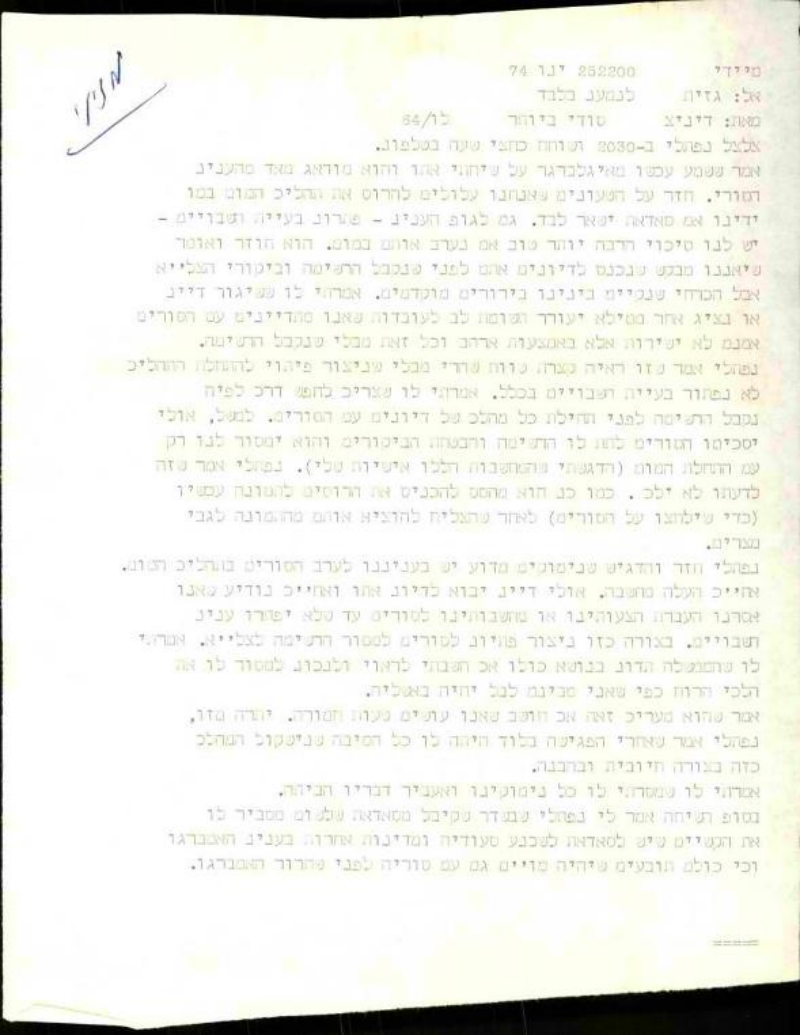 מיידי 252200 ינו 74
אל: גזית לנמענ בלבד
מאת: דיניצ סודי ביותר לו/64
צלצל נפתלי ב-2030 ושוחח כחצי שעה בטלפונ.
אמר ששמע עכשו מאיגלברגר על שיחתי אתו והוא מודאג מאד מהענינ
הסורי. חזר על הטעונים שאנחנו עלולים להרוס את תהליכ השום במו
ידינו אמ סאדאת ישאר לבד. גמ לגופ הענינ - פתרונ בעיית השבויים -
יש לנו סיכוי הרבה יותר טוב אמ נערב אותמ במומ. הוא חוזר ואומר
שיאננו מבקש שנכנס לדיונים אתמ לפני שנקבל הרשימה וביקורי הצלייא
אבל הכרחי שנקיים בינינו בירורים מוקדמים. אמרתי לו ששיגור דיינ
או נציג אחר ממילא יעורר תשומת לב לעובדות שאנו מתדיינים עמ הסורים
אמנמ לא ישירות אלא באמצעות ארהב וכל זאת מבלי שנקבל הרשימה.
נפתלי אמר שזו ראיה קצרת טווח שהרי מבלי שניצור פיתוי להתחלת התהליכ
לא נפתור בעיית השבויים בכלל. אמרתי לו שצריכ לחפש דרכ לפיה
נקבל הרשימה לפני תחילת כל מהלכ של דיונים עמ הסורים. למשל, אולי
יסכימו הסורים לתת לו הרשימה והבטחת הביקורים והוא ימסור לנו רק
עמ התחלת המומ (הדגשתי שהמחשבות הללו אישיות שלי). נפתלי אמר שזה
לדעתו לא ילכ. כמו כנ הוא מהסס להכניס את הרוסים לתמונה עכשיו
(כדי שילחצו על הסורים) לאחר שהצליח להוציא אותמ מהתמונה לגבי
מצרים.
נפתלי חזר והדגיש שנימוקים מדוע יש בעניננו לערב הסורים בתהליכ המומ.
אחייכ העלה מחשבה. אולי דיינ יבוא לדיונ אתו ואחייכ נודיע שאנו
אסרנו העברת הצעותינו או מחשבותינו לסורים עד שלא יפתרו ענינ
השבויים. בצורה כזו ניצור פתיונ לסורים למסור הרשימה לצלייא. אמרתי
לו שהממשלה תדונ בנושא כולו אכ חשבתי לראוי ולנכונ למסור לו את
הלכי הרוח כפי שאני מבינמ לבל יהיה באשליה.
אמר שהוא מעריכ זאת אכ חושב שאנו עושים טעות חמורה. יתרה מזו,
נפתלי אמר שאחרי הפגישה בלוד היתה לו כל הסיבה שנישקול המהלכ
כזה בצורה חיובית ובהבנה.
אמרתי לו שמסרתי לו כל נימוקינו ואעביר דבריו הביתה.
בסופ השיחה אמר לי נפתלי שבשדר שקיבל מסאדאת שלשום מסביר לו
את הקשיים שיש לסאדאת לשכנע סעודיה ומדינות אחרות בענינ האמברגו
וכי כולמ תובעים שיהיה מויים גמ עמ סוריה לפני שחרור האמברגו.